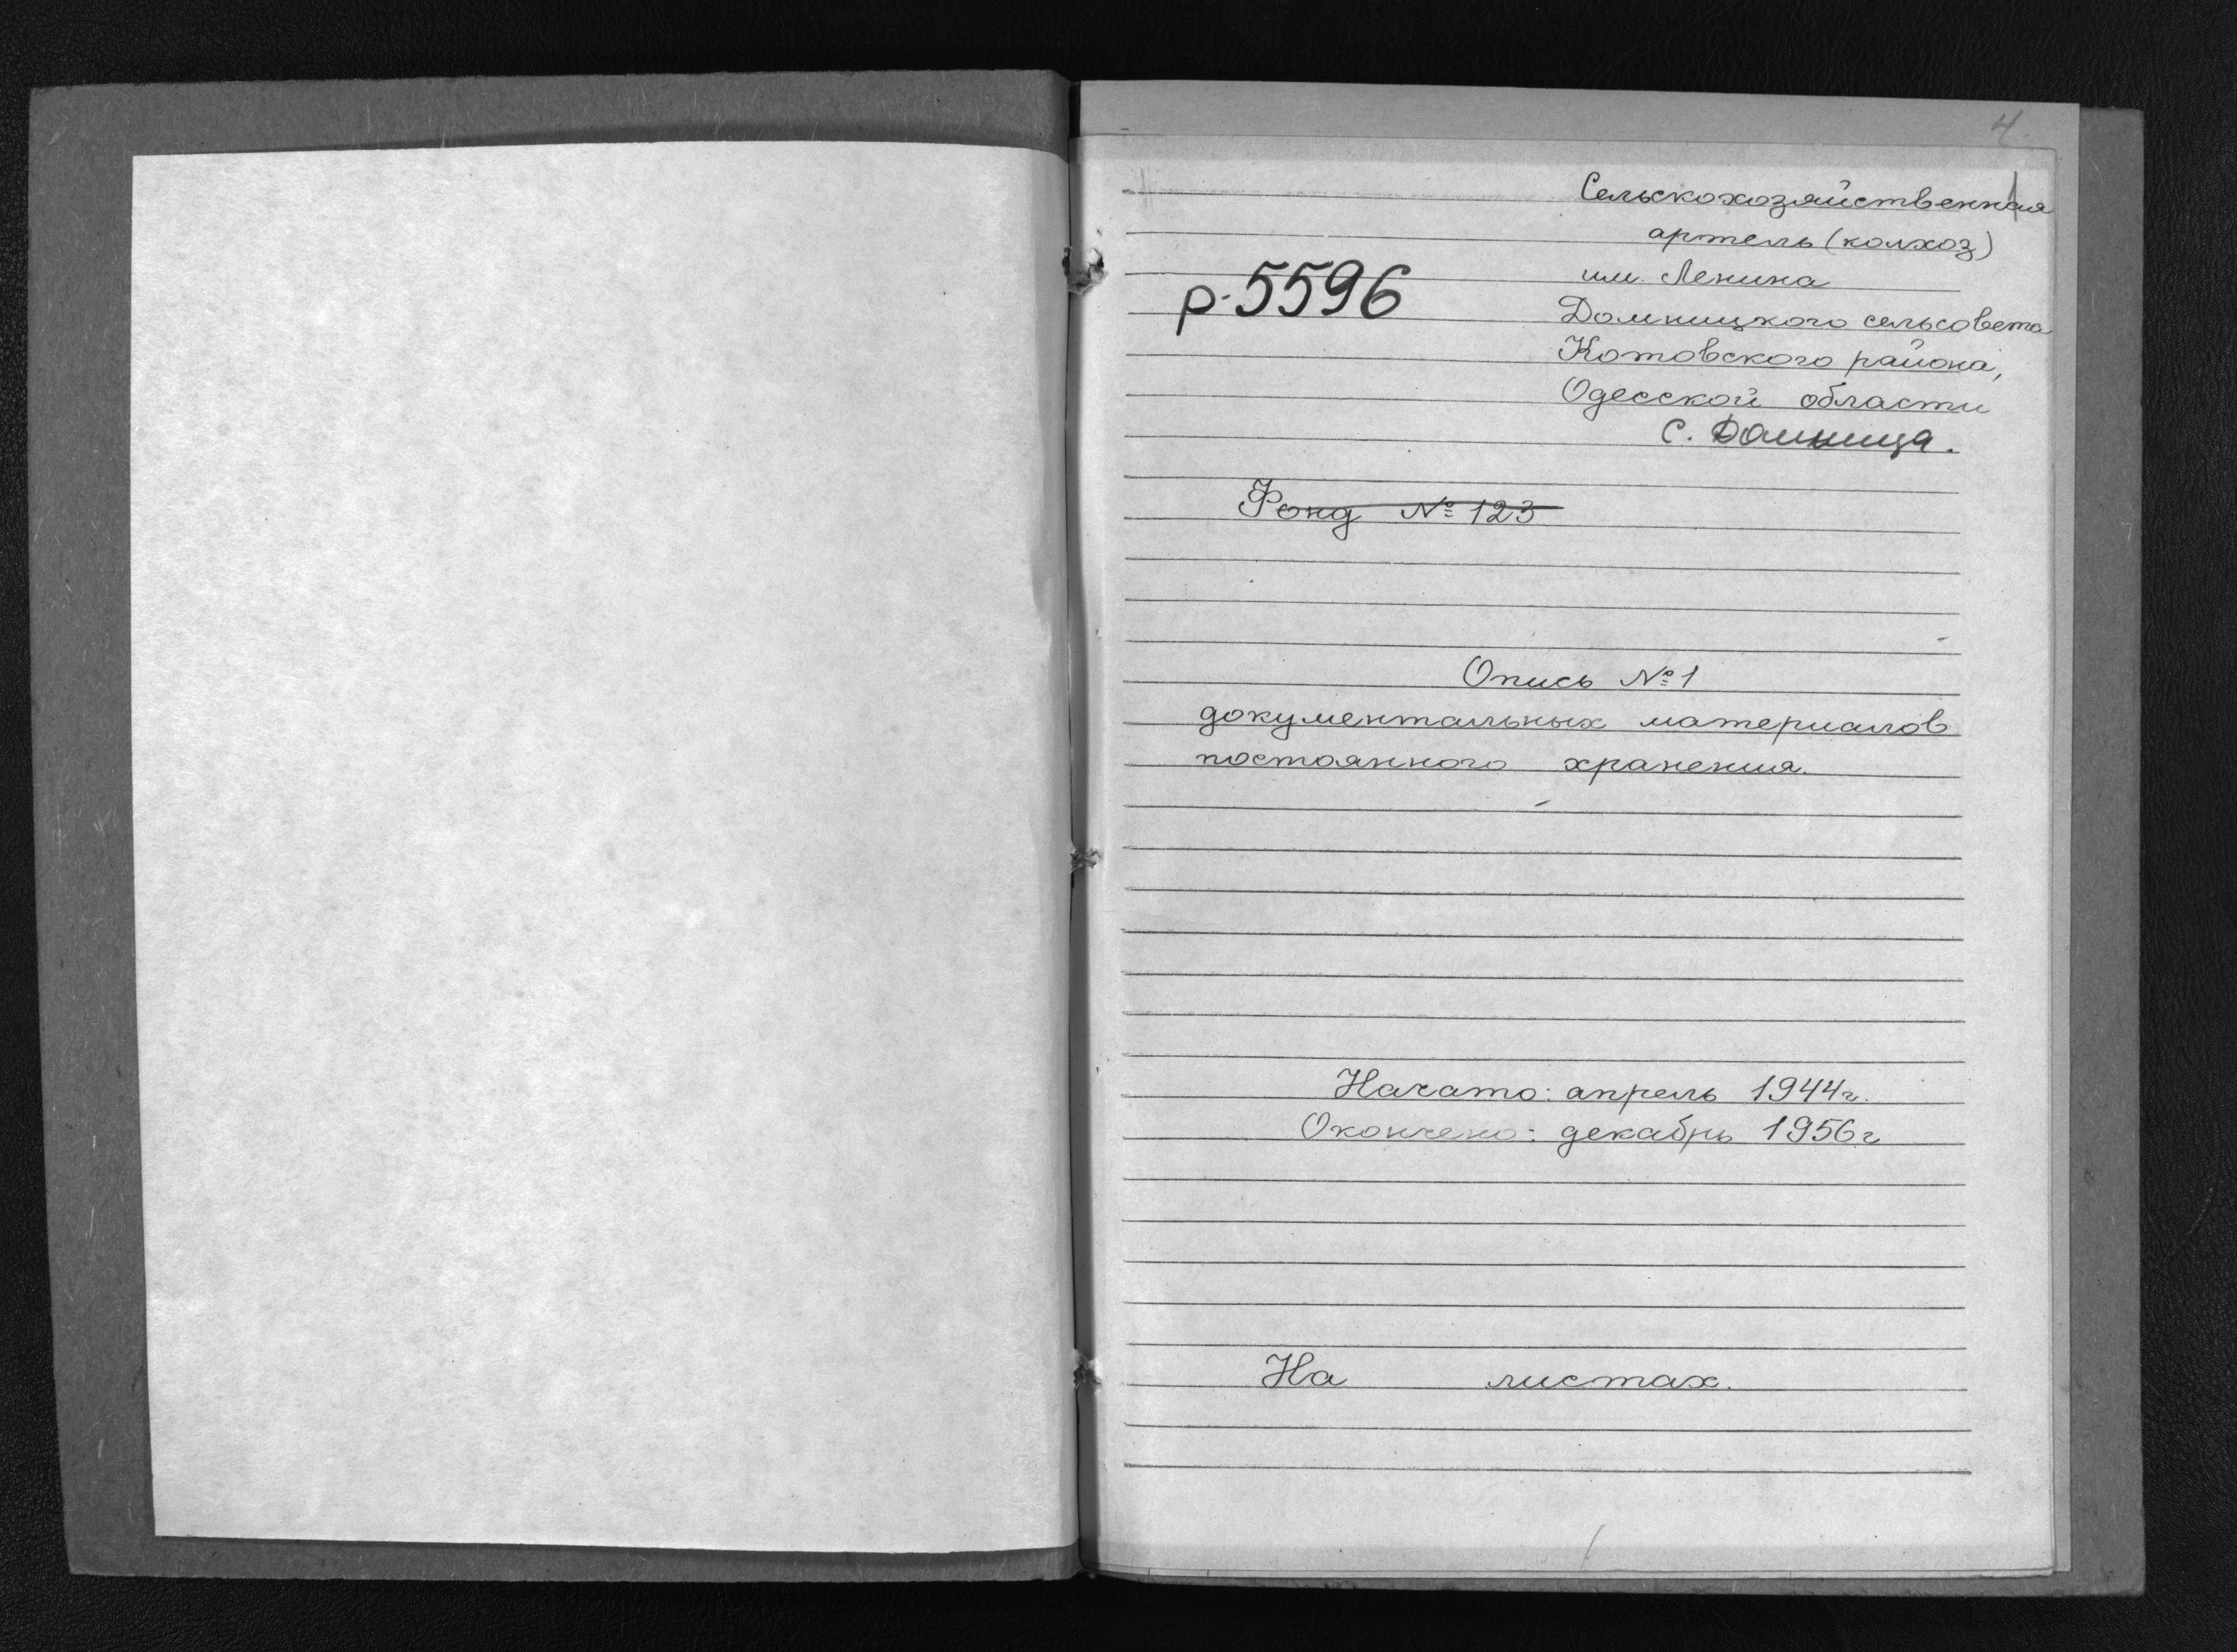 4
Сельскохозяйственная
артель (колхоз)
им. Ленина
р-5596
Домницкого сельсовета
Котовского района,
Одесской области
с. Домница.
Фонд № 123
Опись № 1
документальных материалов
постоянного хранения.
Начато: апрель 1944г.
Окончено: декабрь 1956г
На листах.